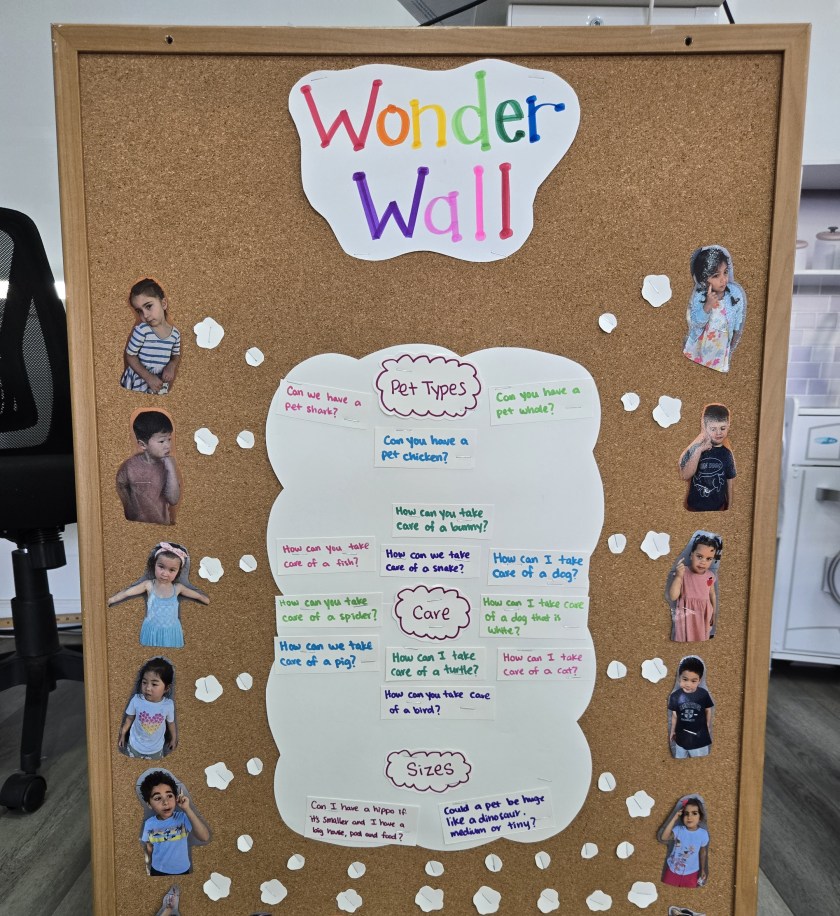 Wonder
Wall
Pet Types
Can we have a
pet shark?
Can you have a
pet whale?
Can you have a
pet chicken?
How can you take
care of a bunny?
How can you take
care of a fish?
How can we take
care of a snake?
How can I take
care of a dog?
How can you take
care of a spider?
Care
How can I take care
of a dog that is
white?
How can we take
care of a pig?
How can I take
care of a turtle?
How can I take
care of a cat?
How can you take care
of a bird?
Sizes
Can I have a hippo if
its smaller and I have a
big house, pool and food?
Could a pet be huge
like a dinosaur,
medium or tiny?